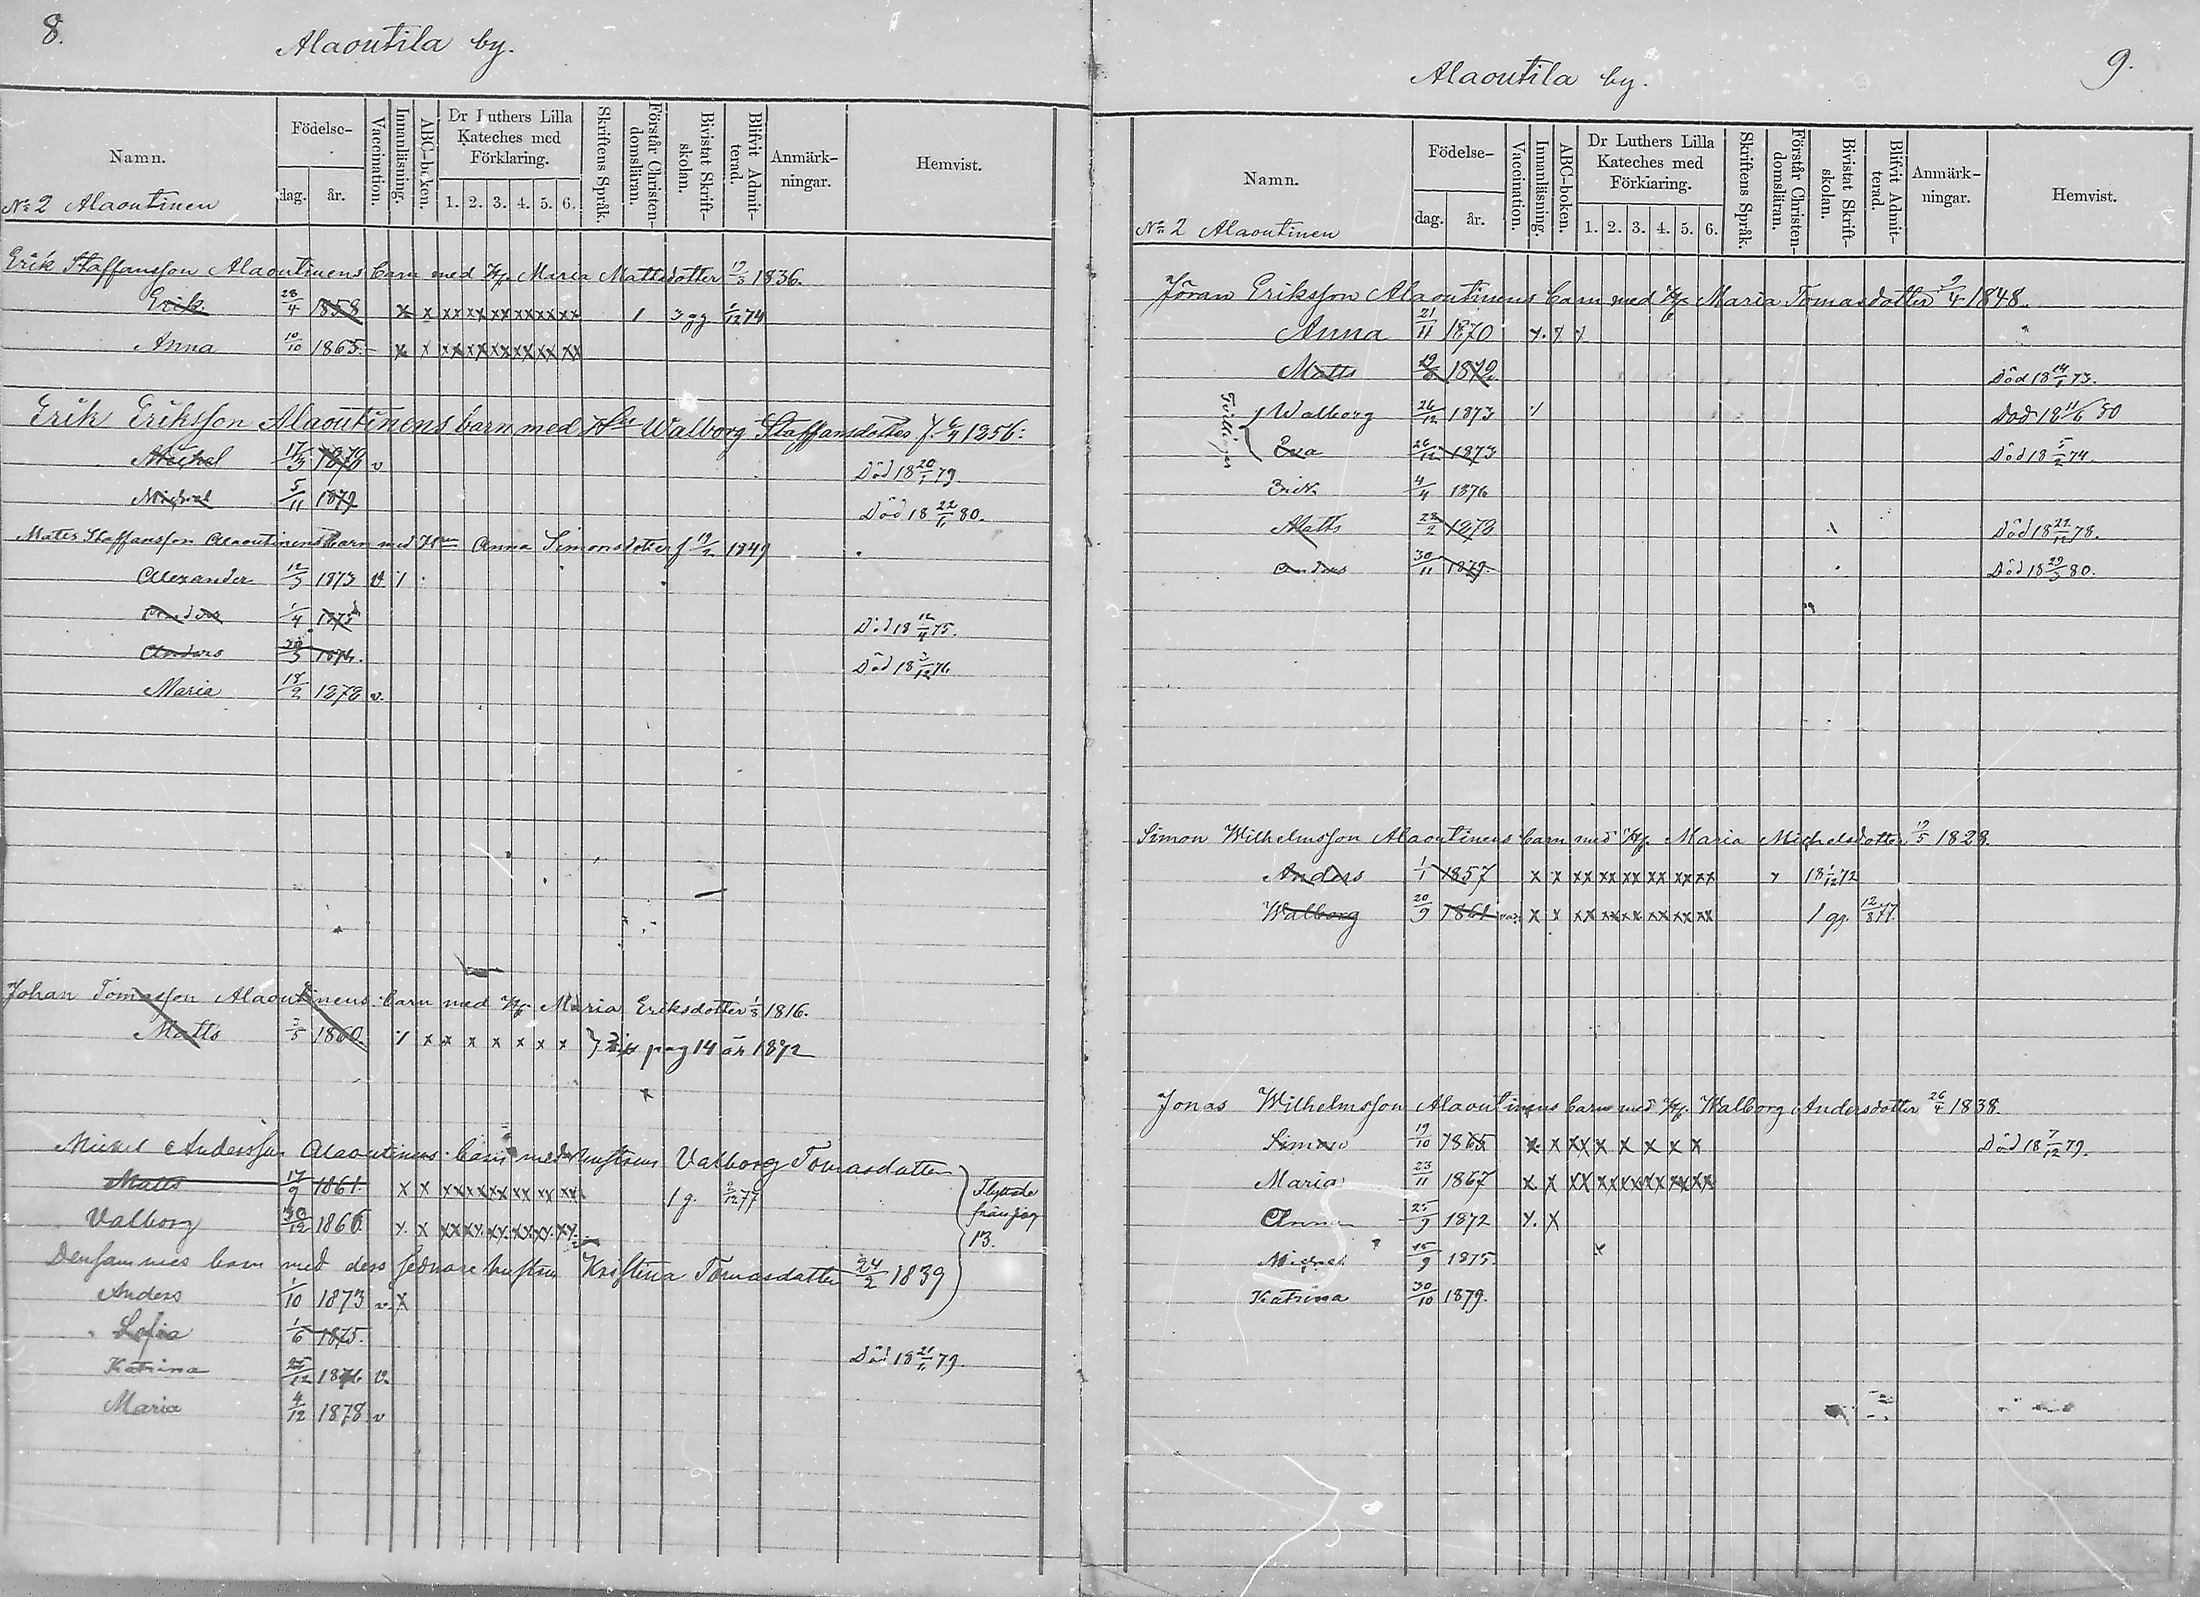 8.
Alaoutila by.
Namn.
Födelse-
dag.
år.
Vaccination.
Innanläsning.
ABC-boken.
Dr Luthers Lilla
Kateches med
Förklaring.
1. 2. 3. 4. 5. 6.
Skriftens Språk.
Förstår Christen-
domsläran.
Bivistat Skrift-
skolan.
Blifvit Admit-
terad.
Anmärk-
ningar.
Hemvist.
No 2 Alaoutinen
Erik Staffansson Alaoutinens barn med H. Maria Mattsdotter 19/3 1836.
Erik 28/4 1858 x x xx xx xx xx xx xx 1 3 gg 1/12 74
Anna 10/10 1865 x x xx xx xx xx xx xx
Erik Eriksson Alaoutinens barn med Walborg Staffansdotter f. 1856:
Michel 17/3 1878 v Död 18 20/1 79.
Michel 5/11 1879 Död 18 22/11 80.
Matts Staffansson Alaoutinens barn med Anna Simonsdotter f 19/2 1849
Alexander 12/3 1873 v. 1
Anders 1/4 1875 Död 18 12/4 75.
Anders 30/3 1876. Död 18 3/12 76
Maria 18/2 1878 v.
Johan Tomasson Alaoutinens barn med H. Maria Eriksdotter 1/3 1816.
Matts 3/5 1860 1 x x x x x x x pag 14 år 1872
Michel Andersson Alaoutinens barn med hustrun Valborg Tomasdotter
Matts 17/9 1861. x x xx xx xx xx xx xx 1 g. 2/12 77
Valborg 30/12 1866 x. x xx xx xx xx xx xx
Flyttade
från pag
13.
Densammes barn med dess sednare hustru Kristina Tomasdotter 24/2 1839
Anders 1/10 1873 v. x
Sofia 1/6 1875. Död 18 21/11 79.
Katrina 25/12 1876 v.
Maria 4/12 1878 v
9.
Alaoutila by.
Namn.
Födelse-
dag.
år.
Vaccination.
Innanläsning.
ABC-boken.
Dr Luthers Lilla
Kateches med
Förklaring.
1. 2. 3. 4. 5. 6.
Skriftens Språk.
Förstår Christen-
domsläran.
Bivistat Skrift-
skolan.
Blifvit Admit-
terad.
Anmärk-
ningar.
Hemvist.
No 2 Alaoutinen
Jöran Eriksson Alaoutinens barn med H. Maria Tomasdotter 9/4 1848.
Anna 21/11 1870
Matts 1872 Död 18 14/1 73.
Tvillingar
Walborg 26/12 1873 Död 18 11/6 80
Eva 26/12 1873 Död 18 5/2 74.
Erik 4/4 1876
Matts 28/2 1878 Död 18 22/12 78.
Anders 30/11 1879. Död 18 29/3 80.
Simon Wilhelmsson Alaoutinens barn med H. Maria Michelsdotter 19/5 1828.
Anders 1/1 1857 x x xx xx xx xx xx xx x 18 1/12 72
Walborg 20/9 1861 vac. x x xx xx xx xx xx xx 1 gg. 12/8 77.
Jonas Wilhelmsson Alaoutinens barn med H. Walborg Andersdotter 26/4 1838.
Simon 19/10 1865 x x xx x x x x x Död 18 7/12 79.
Maria 23/11 1867 x x xx xx xx xx xx xx
Anna 25/9 1872 x. x
Michel 15/9 1875
Katrina 30/10 1879.